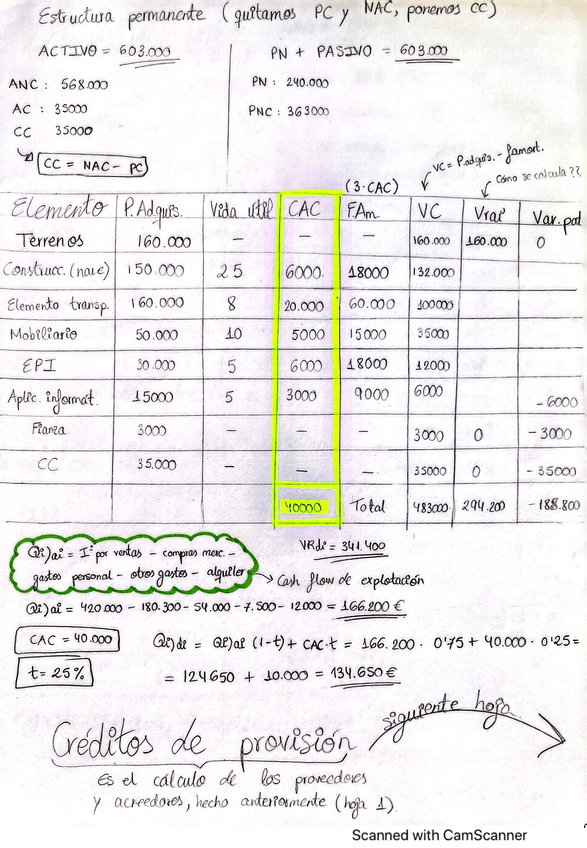 Estructura permanente (quitamos PC y NAC, ponemos CC)
ACTIVO = 603.000
PN + PASIVO = 603.000
ANC: 568.000
PN: 240.000
AC: 35000
PNC: 363000
CC 35000
CC = NAC - PC
VC = P.adquis. - f.amort.
Cómo se calcula??
(3·CAC)
Elemento P.Adquis. Vida útil CAC F.Am VC Vrai Var.pat
Terrenos 160.000 — — — 160.000 160.000 0
Construcc. (nave) 150.000 25 6000. 18000 132.000
Elemento transp. 160.000 8 20.000 60.000 100000
Mobiliario 50.000 10 5000 15000 35000
EPI 30.000 5 6000 18000 12000
Aplic. informat. 15000 5 3000 9000 6000 -6000
Fianza 3000 — — — 3000 0 -3000
CC 35.000 — — — 35000 0 -35000
40000 Total 483000 294.200 -188.800
Qi)ai = Iº por ventas - compras merc. -
gastos personal - otros gastos - alquiler
VRdi = 341.400
Cash flow de explotación
Qi)ai = 420.000 - 180.300 - 54.000 - 7.500 - 12000 = 166.200 €
CAC = 40.000
Qi)di = Qi)ai (1-t) + CAC·t = 166.200 · 0'75 + 40.000 · 0'25 =
t = 25%
= 124650 + 10.000 = 134.650 €
siguiente hoja
Créditos de provisión
Es el cálculo de los proveedores
y acreedores, hecho anteriormente (hoja 1).
Scanned with CamScanner